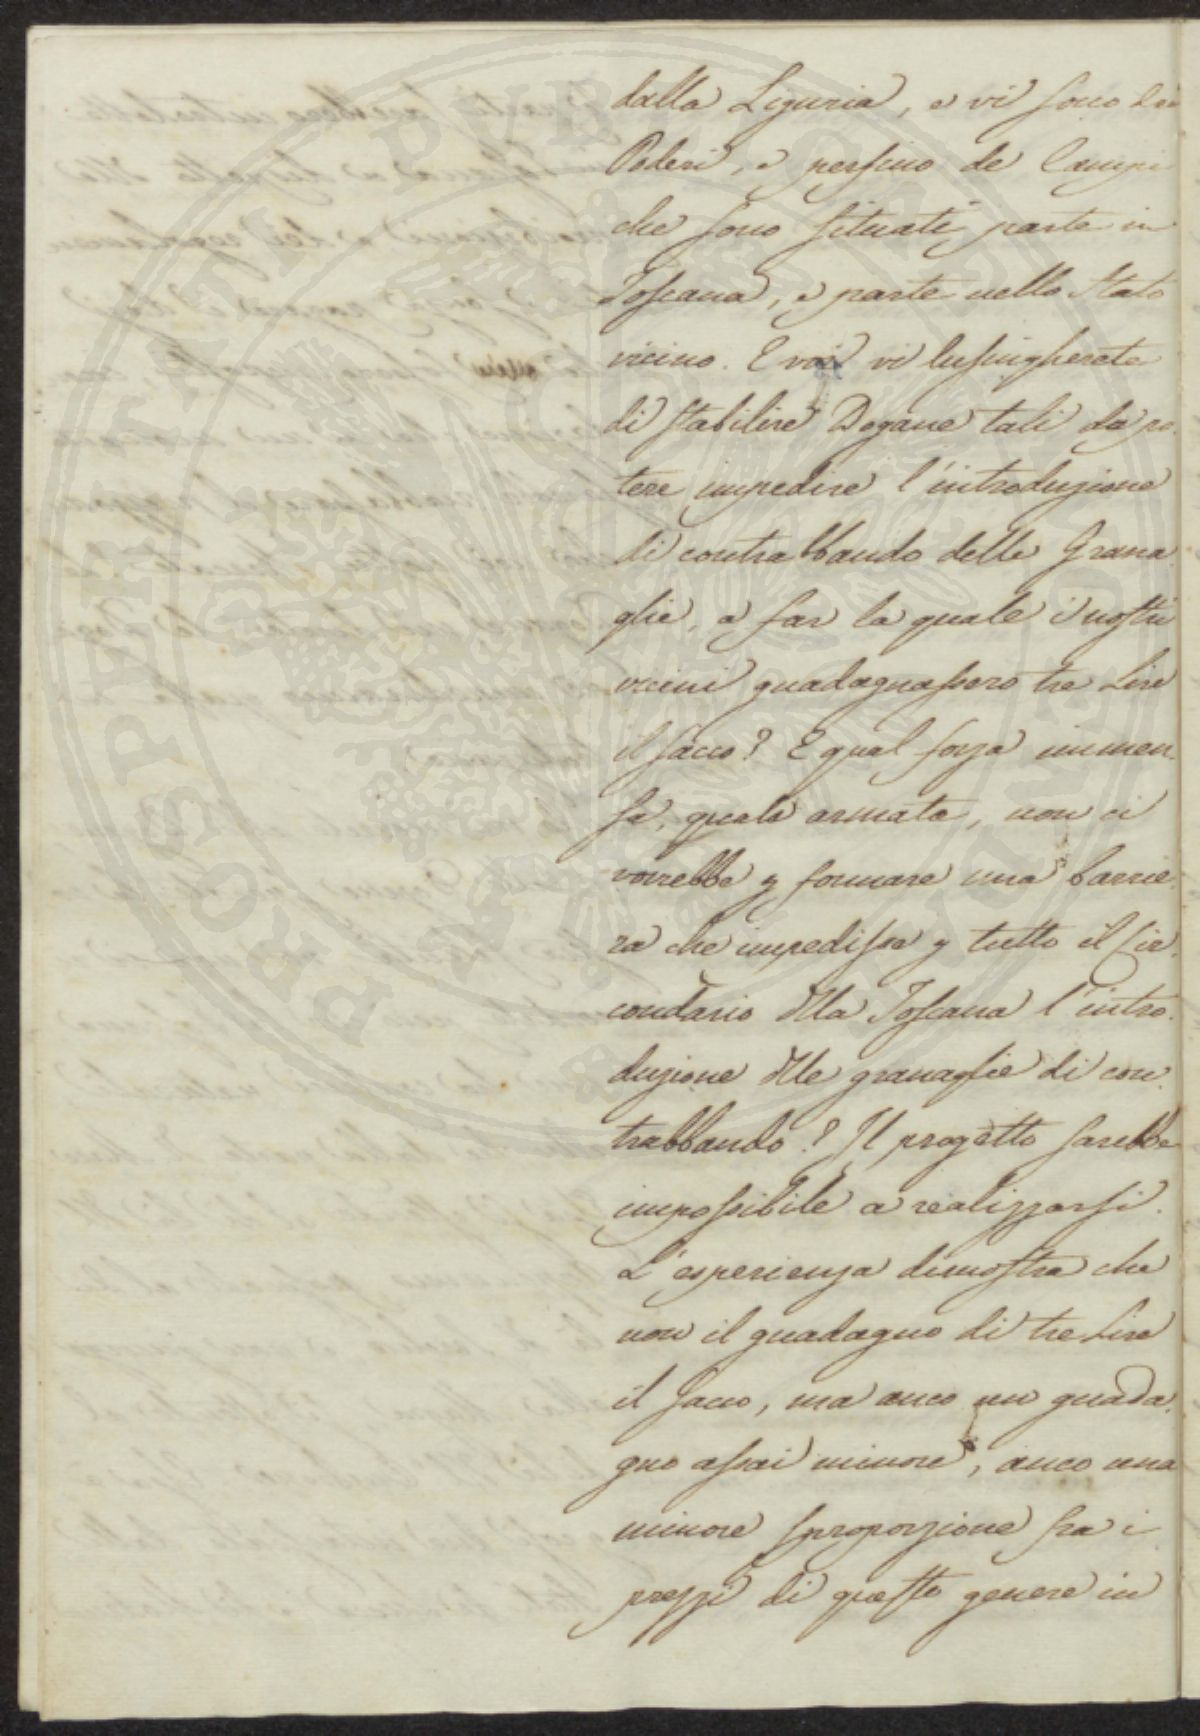 dalla Liguria, e vi sono dei
Poderi, e persino de Campi
che sono situati parte in
Toscana, e parte nello Stato
vicino. E voi vi lusingherete
di stabilire Dogane tali da po
tere impedire l'introduzione
di contrabbando delle Grana
glie, a far la quale i nostri
vicini guadagnassero tre Lire
il sacco? E qual forza immen
sa, quale armata, non ci
vorrebbe p formare una barrie
ra che impedisse p tutto il Cir
condario dlla Toscana l'intro
duzione dlle granaglie di con
trabbando? Il progetto sarebbe
impossibile a realizzarsi.
L'esperienza dimostra che
non il guadagno di tre Lire
il sacco, ma anco un guada
gno assai minore, anco una
minore sproporzione fra i
prezzi di questo genere in
PROSPERITATI PVBLICAE